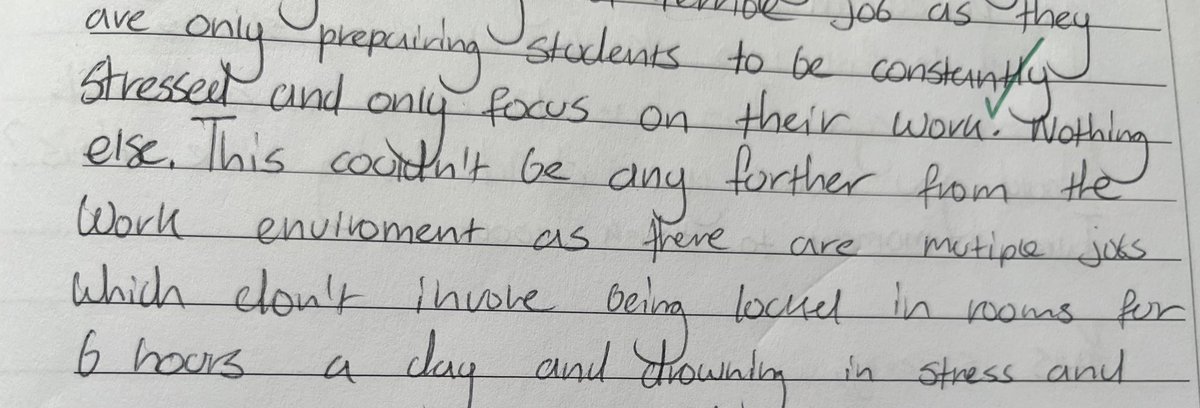 terrible job as they
are only prepairing students to be constantly
stressed and only focus on their work. Nothing
else. This couldn't be any further from the
work enviroment as there are mutiple jobs
which don't involve being locked in rooms for
6 hours a day and drowning in stress and